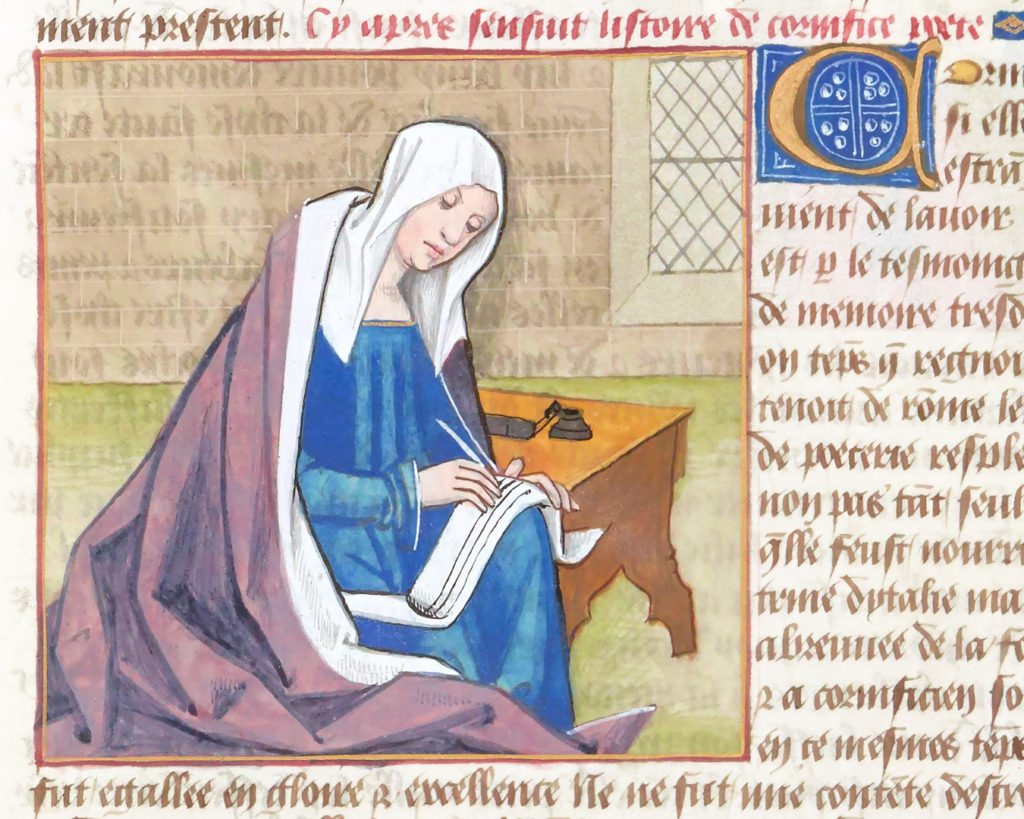 ment prestent. Cy apres sensuit listoire de cornifice poete
Corn
si elle
estra
ment de lauoir
est p le tesmoing
de memoire tresd
on teps q regnoi
tenoit de rome le
de poeterie resple
non pas tat seul
qlle feust nourri
terme dytalie ma
abreuuee de la fo
z a cornificien so
en ce mesmes teps
fut egallee en gloire z excellence Ne ne fut une contete destre